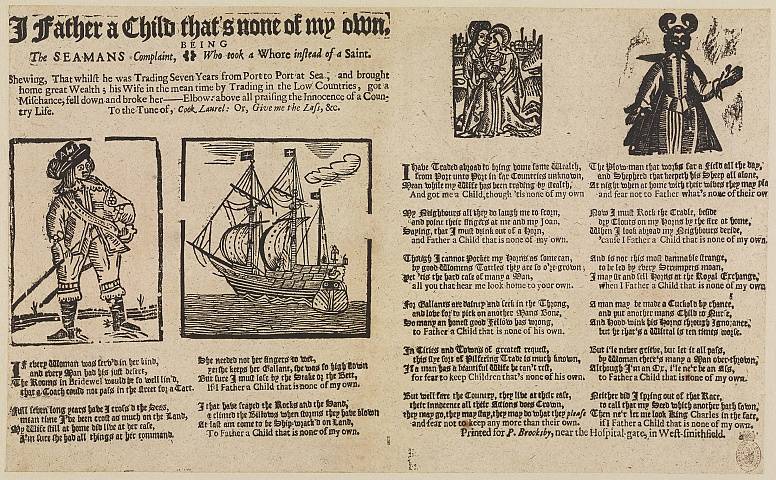 I Father a Child that's none of my own,
BEING
The SEA-MANS Complaint, Who took a Whore instead of a Saint.
Shewing, That whilst he was Trading Seven Years from Port to Port at Sea, and brought
home great Wealth; his Wife in the mean time by Trading in the Low Countries, got a
Mischance, fell down and broke her——Elbow: above all praising the Innocence of a Coun-
try Life. To the Tune of, Cook Laurel: Or, Give me the Lass, &c.
If every Woman was serv'd in her kind,
and every Man had his just desert,
The Rooms in Bridewel would be so well lin'd,
that a Coach could not pass in the Street for a Cart.
Full seven long years have I cross'd the Seas,
mean time I've been crost as much on the Land,
My Wife still at home did live at her ease,
I'm sure she had all things at her command.
She needed not her fingers to wet,
yet she keeps her Gallant, she was so high flown
But sure I must lose by the Stake & the Bett,
if I Father a Child that is none of my own.
I that have scaped the Rocks and the Sand,
& climed the Billows when storms they have blown
At last am come to be Ship-wrack'd on Land,
To Father a Child that is none of my own.
I Have Traded abroad to bring home some Wealth,
from Port unto Port in far Countries unknown,
Mean while my Wife has been trading by stealth,
And got me a Child, though 'tis none of my own
My Neighbours all they do laugh me to scorn,
and point their fingers at me and my Joan,
Saying, that I must drink out of a Horn,
and Father a Child that is none of my own.
Though I cannot Pocket my Horns as some can,
by good Womens Tattles they are so o're grown;
yet 'tis the hard case of many a Man,
all you that hear me look home to your own.
For Gallants are dainty and seek in the Throng,
and love for to pick on another Mans Bone,
So many an honest good Fellow has wrong,
to Father a Child that is none of his own.
In Cities and Towns of greatest request,
this sort of Pilfering Trade is much known,
If a man has a beautiful Wife he can't rest,
for fear to keep Children that's none of his own.
But well fare the Country, they live at their ease,
their innocence all their Actions does Crown,
they may go, they may stay, they may do what they please
and fear not to keep any more than their own.
The Plow-man that works far a Field all the day,
and Shepherd that keepeth his Sheep all alone,
At night when at home with their wives they may pla
and fear not to Father what's none of their ow
Now I must Rock the Cradle, beside
dry Clouts on my Horns by the fire at home,
When I look abroad my Neighbours deride,
'cause I Father a Child that is none of my own.
And is not this most damnable strange,
to be led by every Strumpets moan,
I may sit and sell Horns at the Royal Exchange,
when I Father a Child that is none of my own.
A man may be made a Cuckold by chance,
and put another mans Child to Nurse,
And Hood-wink his Horns through Ignorance,
but he that's a Wittal is ten times worse.
But i'le ne'er grieve, but let it all pass,
by Women there's many a Man over-thrown,
Although I'm an Ox, i'le ne'r be an Ass,
to Father a Child that is none of my own.
Neither did I spring out of that Race,
to call that my Seed which another hath sown,
Then ne'r let me look King Charles in the face,
if I Father a Child that is none of my own.
Printed for P. Brooksby, near the Hospital-gate, in West-smithfield.